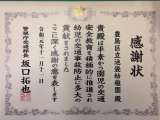 感謝状
豊島区立池袋幼稚園 殿
貴園は平素から園児の交通
安全教育を積極的に推進され
幼児の交通事故防止に多大の
貢献をされました
ここに深く感謝の意を表します
令和元年十月十一日
警視庁交通部長 坂口拓也